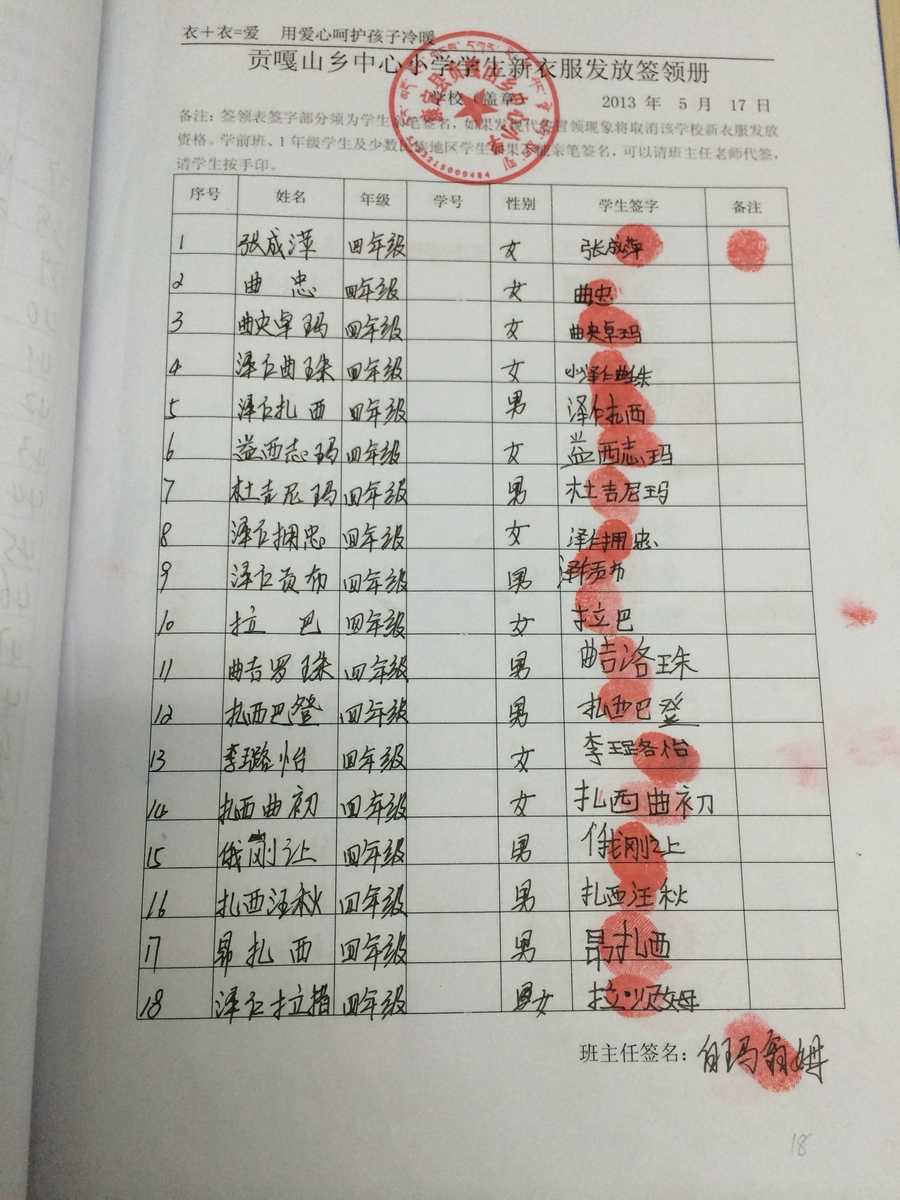 衣＋衣=爱 用爱心呵护孩子冷暖
贡嘎山乡中心小学学生新衣服发放签领册
学校（盖章） 2013 年 5 月 17 日
备注：签领表签字部分须为学生亲笔签名，如果发现代签冒领现象将取消该学校新衣服发放
资格。学前班、1 年级学生及少数民族地区学生如果不能亲笔签名，可以请班主任老师代签，
请学生按手印。
序号 姓名 年级 学号 性别 学生签字 备注
1 张成萍 四年级 女 张成萍
2 曲忠 四年级 女 曲忠
3 曲央卓玛 四年级 女 曲央卓玛
4 泽仁曲珠 四年级 女 小泽仁曲珠
5 泽仁扎西 四年级 男 泽仁扎西
6 益西志玛 四年级 女 益西志玛
7 杜吉尼玛 四年级 男 杜吉尼玛
8 泽仁拥忠 四年级 女 泽仁拥忠
9 泽仁贡布 四年级 男 泽仁贡布
10 拉巴 四年级 女 拉巴
11 曲吉罗珠 四年级 男 曲吉洛珠
12 扎西巴登 四年级 男 扎西巴登
13 李璐怡 四年级 女 李璐怡
14 扎西曲初 四年级 女 扎西曲初
15 俄刚让 四年级 男 俄刚让
16 扎西汪秋 四年级 男 扎西汪秋
17 昂扎西 四年级 男 昂扎西
18 泽仁拉措 四年级 女
班主任签名：白玛翁姆
18